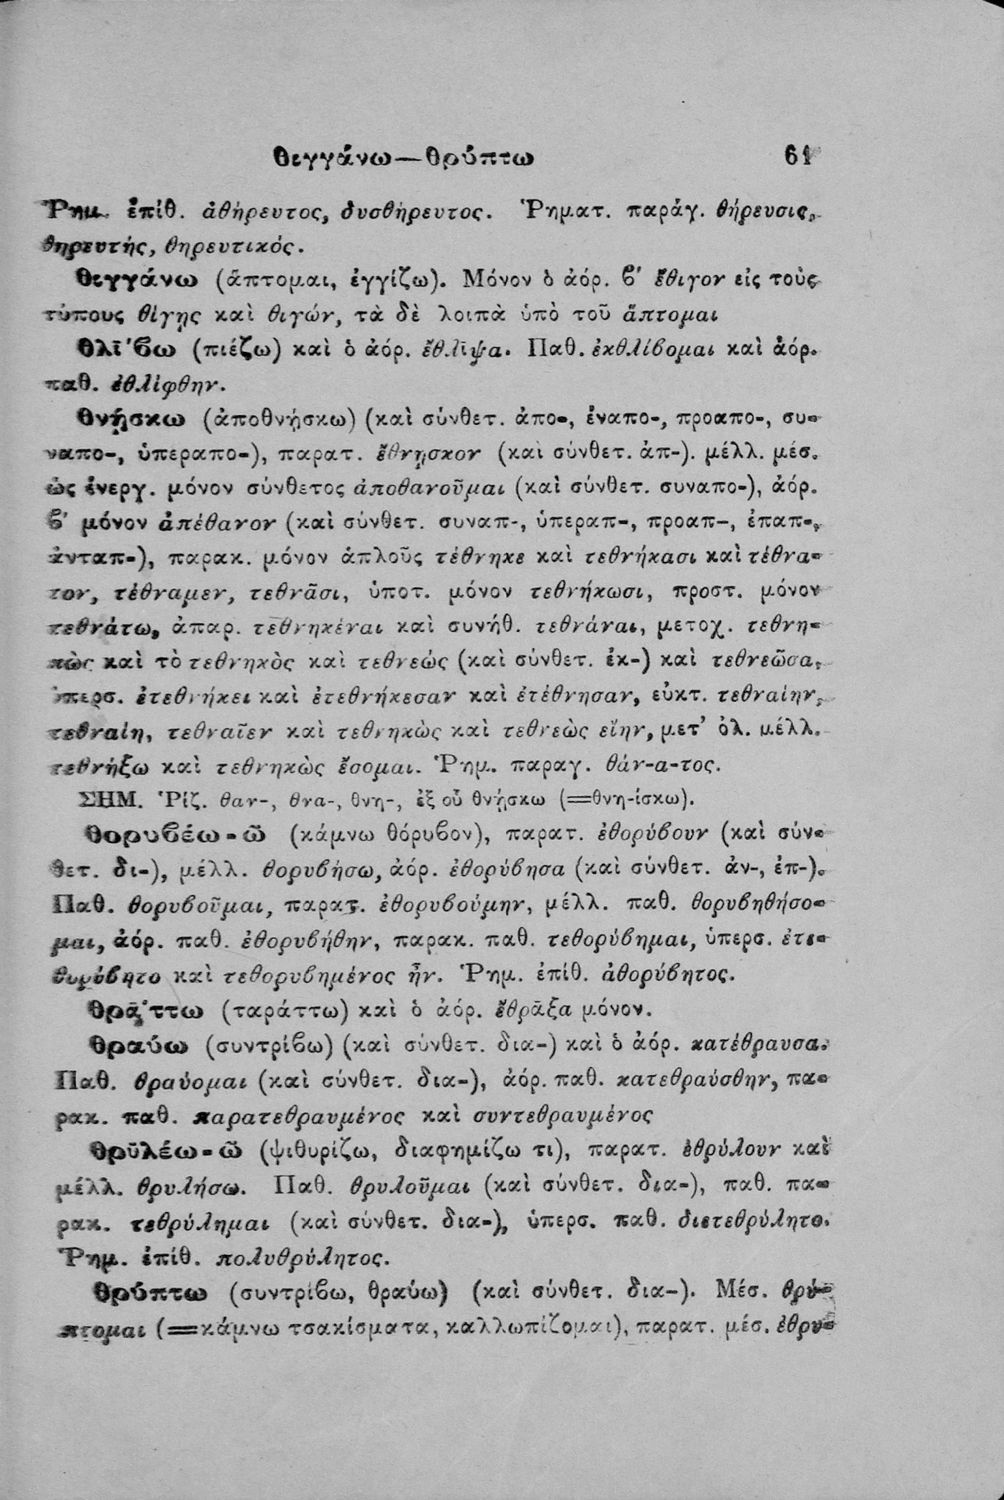 θεγγάνω—θρύπτω 61
Ῥημ. ἐπίθ. ἀθήρευτος, δυσθήρευτος. Ῥηματ. παράγ. θήρευσις,
θηρευτής, θηρευτικός.
θεγγάνω (ἅπτομαι, ἐγγίζω). Μόνον ὁ ἀόρ. β' ἔθιγον εἰς τοὺς
τύπους θίγῃς καὶ θιγών, τὰ δὲ λοιπὰ ὑπὸ τοῦ ἅπτομαι
θλῑ'βω (πιέζω) καὶ ὁ ἀόρ. ἔθλῑψα. Παθ. ἐκθλίβομαι καὶ ἀόρ.
παθ. ἐθλίφθην.
θνῄσκω (ἀποθνήσκω) (καὶ σύνθετ. ἀπο-, ἐναπο-, προαπο-, συ-
ναπο-, ὑπεραπο-), παρατ. ἔθνῃσκον (καὶ σύνθετ. ἀπ-). μέλλ. μέσ.
ὡς ἐνεργ. μόνον σύνθετος ἀποθανοῦμαι (καὶ σύνθετ. συναπο-), ἀόρ.
β' μόνον ἀπέθανον (καὶ σύνθετ. συναπ-, ὑπεραπ-, προαπ-, ἐπαπ-,
ἀνταπ-), παρακ. μόνον ἁπλοῦς τέθνηκε καὶ τεθνήκασι καὶ τέθνα-
τον, τέθναμεν, τεθνᾶσι, ὑποτ. μόνον τεθνήκωσι, προστ. μόνον
τεθνάτω, ἀπαρ. τεθνηκέναι καὶ συνήθ. τεθνάναι, μετοχ. τεθνη-
κὼς καὶ τὸ τεθνηκὸς καὶ τεθνεώς (καὶ σύνθετ. ἐκ-) καὶ τεθνεῶσα,
ὑπερσ. ἐτεθνήκει καὶ ἐτεθνήκεσαν καὶ ἐτέθνησαν, εὐκτ. τεθναίην,
τεθναίη, τεθναῖεν καὶ τεθνηκὼς καὶ τεθνεὼς εἴην, μετ' ὀλ. μέλλ.
τεθνήξω καὶ τεθνηκὼς ἔσομαι. Ῥημ. παραγ. θάν-α-τος.
ΣΗΜ. Ῥίζ. θαν-, θνα-, θνη-, ἐξ οὗ θνήσκω (=θνη-ίσκω).
θορυβέω-ῶ (κάμνω θόρυβον), παρατ. ἐθορύβουν (καὶ σύν-
θετ. δι-), μέλλ. θορυβήσω, ἀόρ. ἐθορύβησα (καὶ σύνθετ. ἀν-, ἐπ-).
Παθ. θορυβοῦμαι, παρατ. ἐθορυβούμην, μέλλ. παθ. θορυβηθήσο-
μαι, ἀόρ. παθ. ἐθορυβήθην, παρακ. παθ. τεθορύβημαι, ὑπερσ. ἐτε-
θορύβητο καὶ τεθορυβημένος ἦν. Ῥημ. ἐπίθ. ἀθορύβητος.
θρᾴ'ττω (ταράττω) καὶ ὁ ἀόρ. ἔθρᾱξα μόνον.
θραύω (συντρίβω) (καὶ σύνθετ. δια-) καὶ ὁ ἀόρ. κατέθραυσα.
Παθ. θραύομαι (καὶ σύνθετ. δια-), ἀόρ. παθ. κατεθραύσθην, πα-
ρακ. παθ. παρατεθραυμένος καὶ συντεθραυμένος
θρῡλέω-ῶ (ψιθυρίζω, διαφημίζω τι), παρατ. ἐθρύλουν καὶ
μέλλ. θρυλήσω. Παθ. θρυλοῦμαι (καὶ σύνθετ. δια-), παθ. πα-
ρακ. τεθρύλημαι (καὶ σύνθετ. δια-), ὑπερσ. παθ. διετεθρύλητο.
Ῥημ. ἐπίθ. πολυθρύλητος.
θρύπτω (συντρίβω, θραύω) (καὶ σύνθετ. δια-). Μέσ. θρύ-
πτομαι (=κάμνω τσακίσματα, καλλωπίζομαι), παρατ. μέσ. ἐθρυ-